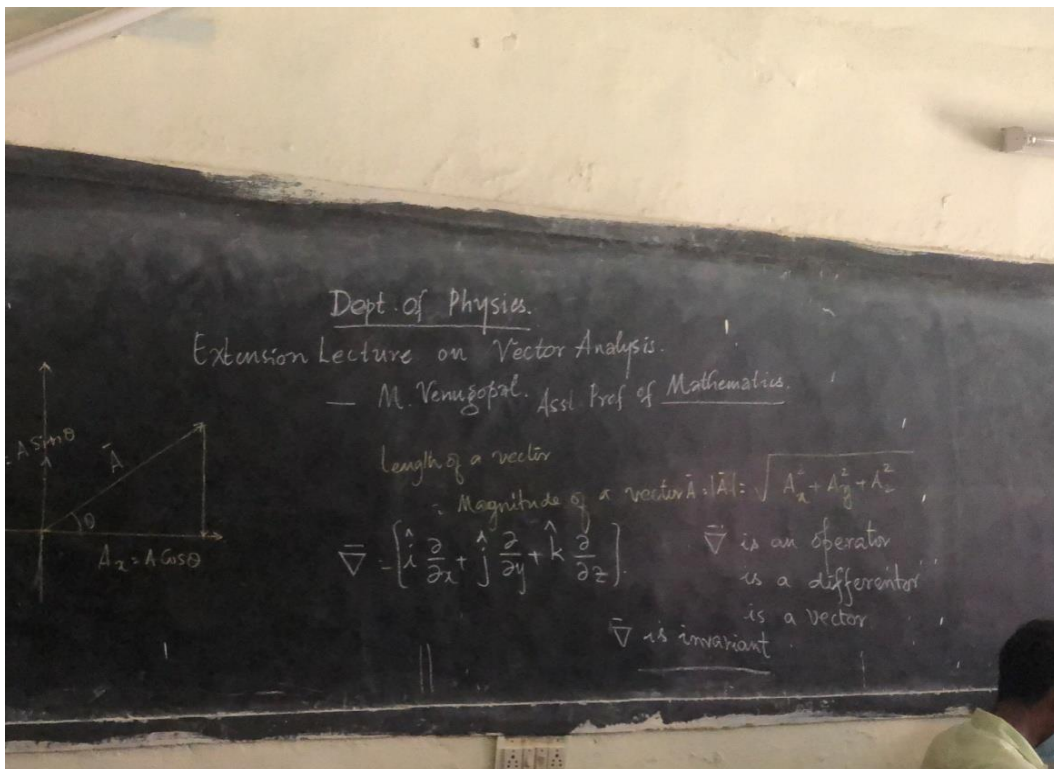 Dept. of Physics.
Extension Lecture on Vector Analysis.
— M. Venugopal. Asst. Prof of Mathematics.
A Sinθ
Ā
θ
Aₓ = A Cosθ
Length of a vector
= Magnitude of a vector Ā = |Ā| = √(Aₓ² + Aᵧ² + A_z²)
∇̄ = [î ∂/∂x + ĵ ∂/∂y + k̂ ∂/∂z].
∇̄ is an operator
is a differentor
is a vector.
∇̄ is invariant